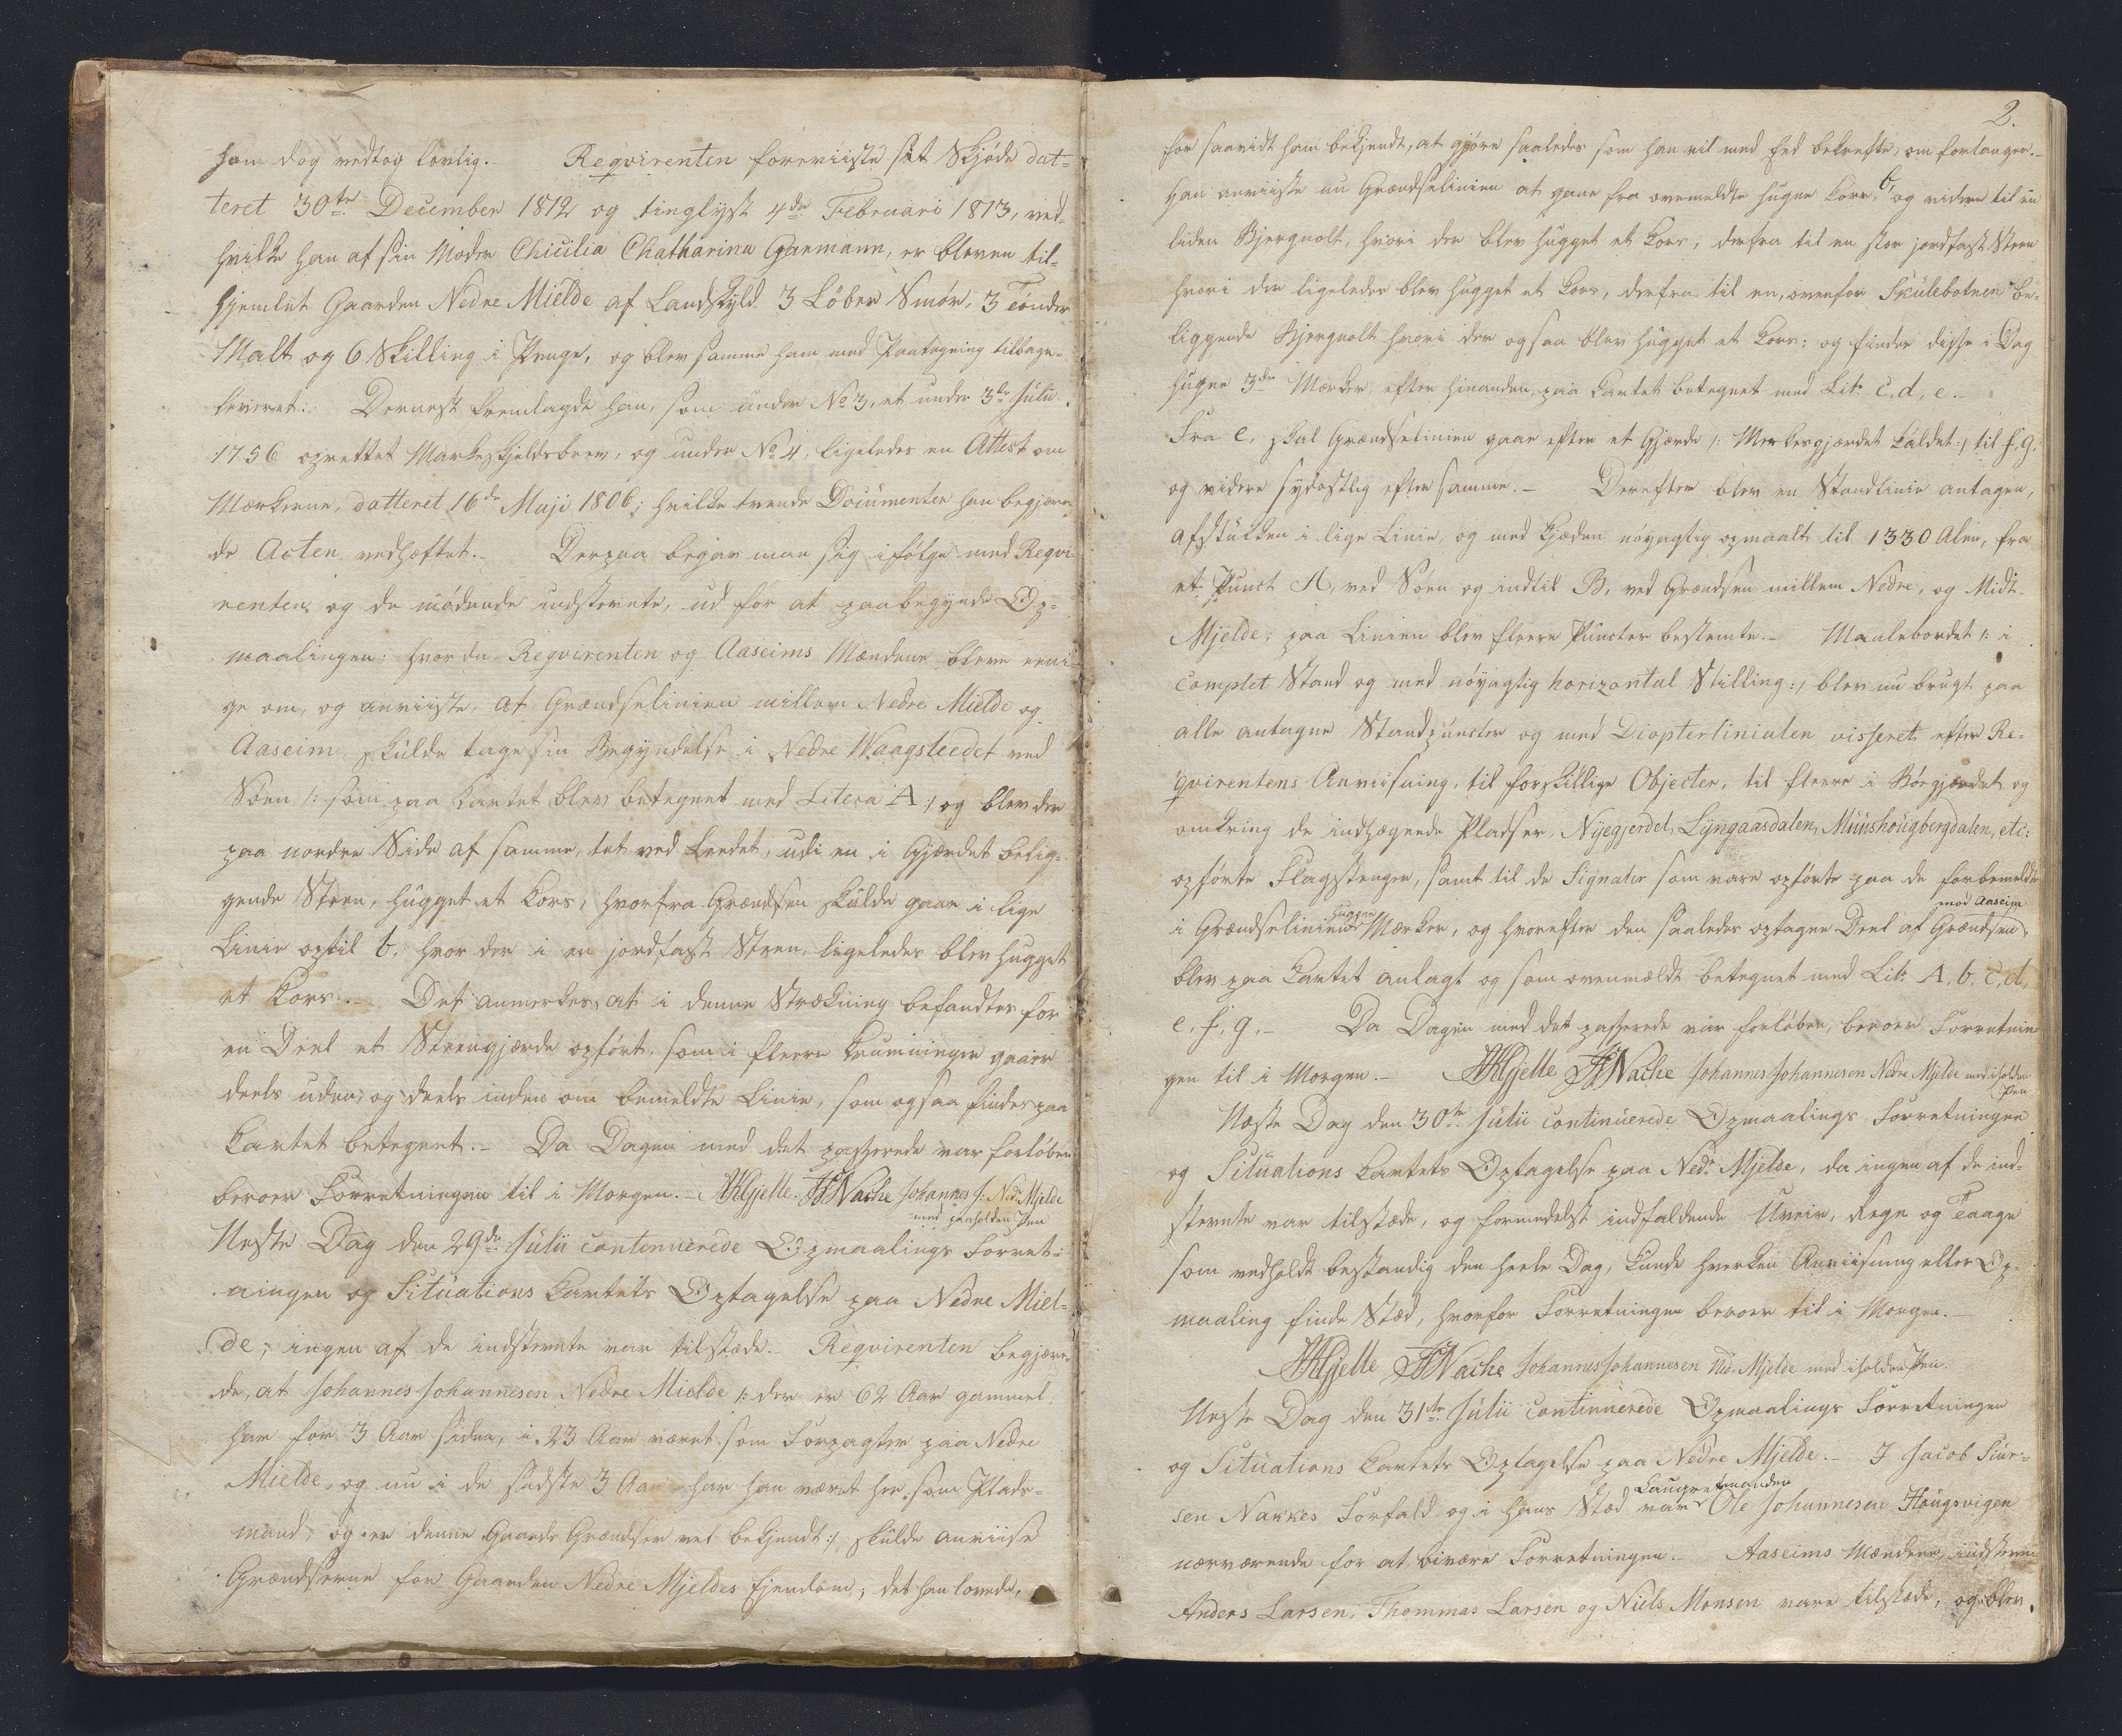 som dog vedtog lovlig. Reqvirenten foreviiste sit Skjøde dat-
teret 30te December 1812 og tinglyst 4de Februari 1813, ved
hvilke han af sin Moder Chicilia Chatharina Garmann, er bleven til-
hjemlet Gaarden Nedre Mielde af Landskyld 3 Løber Smør, 3 Tønder
Malt og 6 Skilling i Penge, og blev samme ham med Paategning tilbage-
leveret. Dernæst fremlagde han, som under No 3, et under 3de Julii
1756 oprettet Markeskjeldsbrev, og under No 4, ligeledes en Attest om
Mærkerne, datteret 16de Maji 1806; hvilke tvende Documenter han begjære-
de Acten vedhæftet.- Derpaa begav man sig ifølge med Reqvi-
renten og de mødende indstevnte, ud for at paabegynde Op-
maalingen; hvor da Reqvirenten og Aaseims Mændene bleve eeni-
ge om, og anviiste, at Grændselinien millem Nedre Mielde og
Aaseim skulde tage sin Begyndelse i Nedre Waagsleedet ved
Søen /: som paa Cartet blev betegnet med Litera A :/ og blev der
paa nordre Side af samme, tet ved Leedet, udi en i Gjærdet belig-
gende Steen, hugget et Kors, hvorfra Grændsen skulde gaae i lige
Linie optil b, hvor der i en jordfast Steen, ligeledes blev hugget
et Kors.- Det anmerkes, at i denne Strækning befandtes for
en Deel et Steengjærde opført, som i fleere Krumninger gaaer
deels uden, og deels inden om bemeldte Linie, som ogsaa findes paa
Cartet betegnet.- Da Dagen med det passerede var forløben
beroer Forretningen til i Morgen.- AHjelle. Nache Johannes J: Ned: Mjelde
med paaholden Pen
Næste Dag den 29de Julii continuerede Opmaalings Forret-
ningen og Situations Cartets Optagelse paa Nedre Miel-
de; ingen af de indstevnte var tilstæde. Reqvirenten begjære-
de, at Johannes Johannesen Nedre Mielde /: der er 62 Aar gammel,
har for 3 Aar siden, i 23 Aar været som Forpagter paa Nedre
Mielde, og nu i de sidste 3 Aar har han været her som Plads-
mand, og er denne Gaards Grændser vel bekjendt :/ skulde anviise
Grændserne for Gaarden Nedre Mjeldes Ejendom; det han lovede,
2.
for saavidt ham bekjendt, at gjøre saaledes som han vil med Eed bekrefte, om forlanges.-
Han anviiste nu Grændselinien at gaae fra ovenmeldte hugne Kors b, og videre til en
liden Bjergnolt, hvori der blev hugget et Kors, derfra til en stor jordfast Steen
hvori der ligeledes blev hugget et Kors, derfra til en, ovenfor Skulebotnen be-
liggende Bjergnolt hvori der ogsaa blev hugget et Kors; og findes disse i Dag
hugne 3de Mærker, efter hinanden, paa Cartet betegnet med Litr c, d, e.-
Fra e, skal Grændselinien gaae efter et Gjærde /: Merkesgjærdet kaldet :/ til f, g,
og videre sydostlig efter samme.- Derefter blev en Standlinie antagen,
afstukken i lige Linie, og med Kjæden nøyagtig opmaalt til 1330 Alen, fra
et Punct A, ved Søen og indtil B, ved Grændsen millem Nedre, og Midt
Mjelde; paa Linien blev fleere Puncter bestemte.- Maalebordet /: i
complet Stand og med nøyagtig horizontal Stilling :/ blev nu brugt paa
alle antagne Standpuncter og med Diopterlinialen visseret efter Re-
qvirentens Anviisning, til forskillige Objecter, til fleere i Børgjærdet og
omkring de indhegnede Pladser, Nyegjerdet, Lyngaasdalen, Muunshougbergdalen, etc:
opførte Flagstenger, samt til de Signaler som vare opførte paa de forbemeldte
i Grændselinien hugne Mærker, og hvorefter den saaledes optagne Deel af Grændsen mod Aaseim
blev paa Cartet anlagt og som ovenmældt betegnet med Litr A, b, c, d,
e, f, g.- Da Dagen med det passerede var forløben, beroer Forretnin
gen til i Morgen.- AHjelle Nache Johannes Johannesen Nedre Mjelde med iholden
Pen
Næste Dag den 30te Julii continuerede Opmaalings Forretningen
og Situations Cartets Optagelse paa Nedr Mjelde, da ingen af de ind-
stevnte var tilstæde, og formedelst indfaldende Uveir, Regn og Taage
som vedholdt bestandig den heele Dag, kunde hverken Anviisning eller Op-
maaling finde Stæd, hvorfor Forretningen beroer til i Morgen.-
AHjelle Nache Johannes Johannesen Ned. Mjelde med iholden Pen.
Næste Dag den 31te Julii continuerede Opmaalings Forretningen
og Situations Cartets Optagelse paa Nedre Mjelde.- I Jacob Siur-
sen Nakkes Forfald og i hans Stæd var Laugretmanden Ole Johannesen Hougsvigen
nærværende for at bivære Forretningen.- Aaseims Mændene, indstevnte
Anders Larsen, Thommas Larsen og Niels Monsen vare tilstæde, og blev